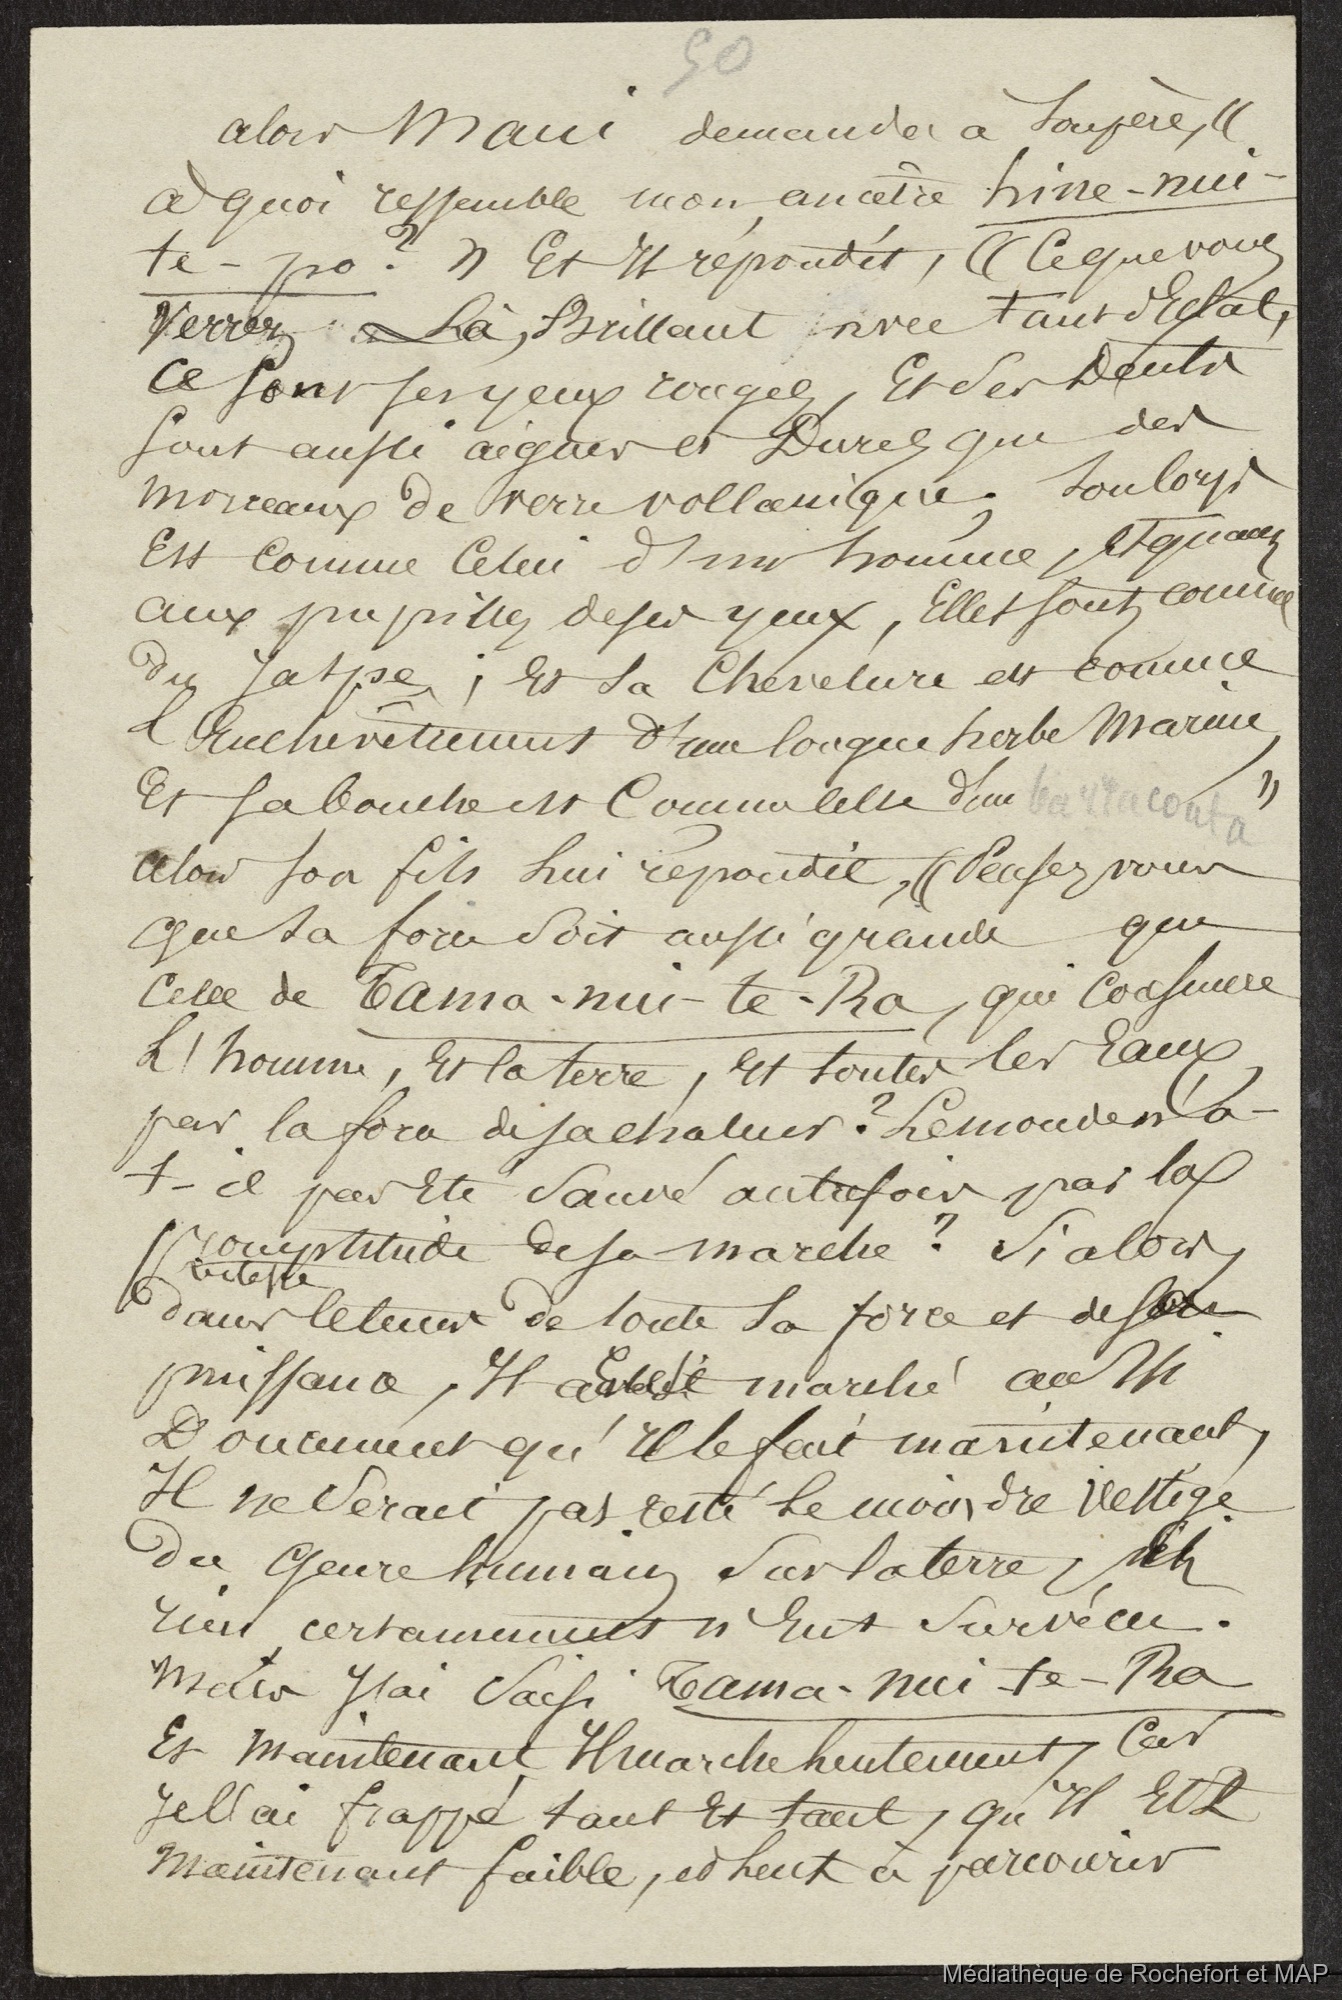 50
alors Maui demanda à son père, «
à quoi ressemble mon ancêtre hine-nui-
te-po ? » Et Il répondit, « Ce que vous
verrez Là, Brillant avec tant d'Eclat,
ce sont ses yeux rouges, Et ses Dents
sont aussi aigues et Dures que des
morceaux de verre vollcanique. Son corps
Est comme Celui d'un homme, Et quant
aux pupilles de ses yeux, Elles sont comme
du jaspe ; Et sa Chevelure est comme
l'Enchevêtrement d'une longue herbe Marine,
Et sa bouche est Comme celle d'un barraconta »
alors son fils lui répondit, « Pensez vous
que sa force soit aussi grande que
Celle de Tama-nui-te-Ra, qui consume
L'homme, Et la terre, Et toutes les Eaux,
par la force de sa chaleur ? Le monde n'a-
t-il pas Eté sauvé autrefois par la
promptitude de sa marche ? Si alors,
vitesse
dans le temps de toute sa force et de son
puissance, Il avait marché aussi
Doucement qu'Il le fait maintenant,
Il ne serait pas resté le moindre vestige
du Genre humain sur la terre, ni
rien certainement n'Eut survécu.
Mais J'ai saisi Tama-nui-te-Ra
Et maintenant Il marche lentement, Car
je l'ai frappé tant Et tant, qu'Il Est
Maintenant faible, et lent à parcourir
Médiathèque de Rochefort et MAP